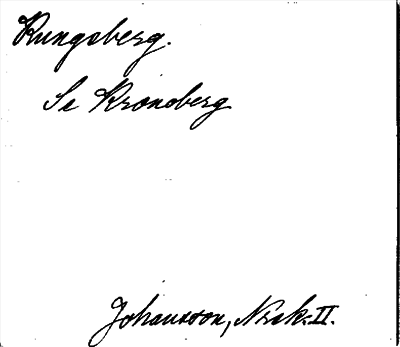 Kungsberg.
Se Kronoberg
Johansson, Nrak. II.